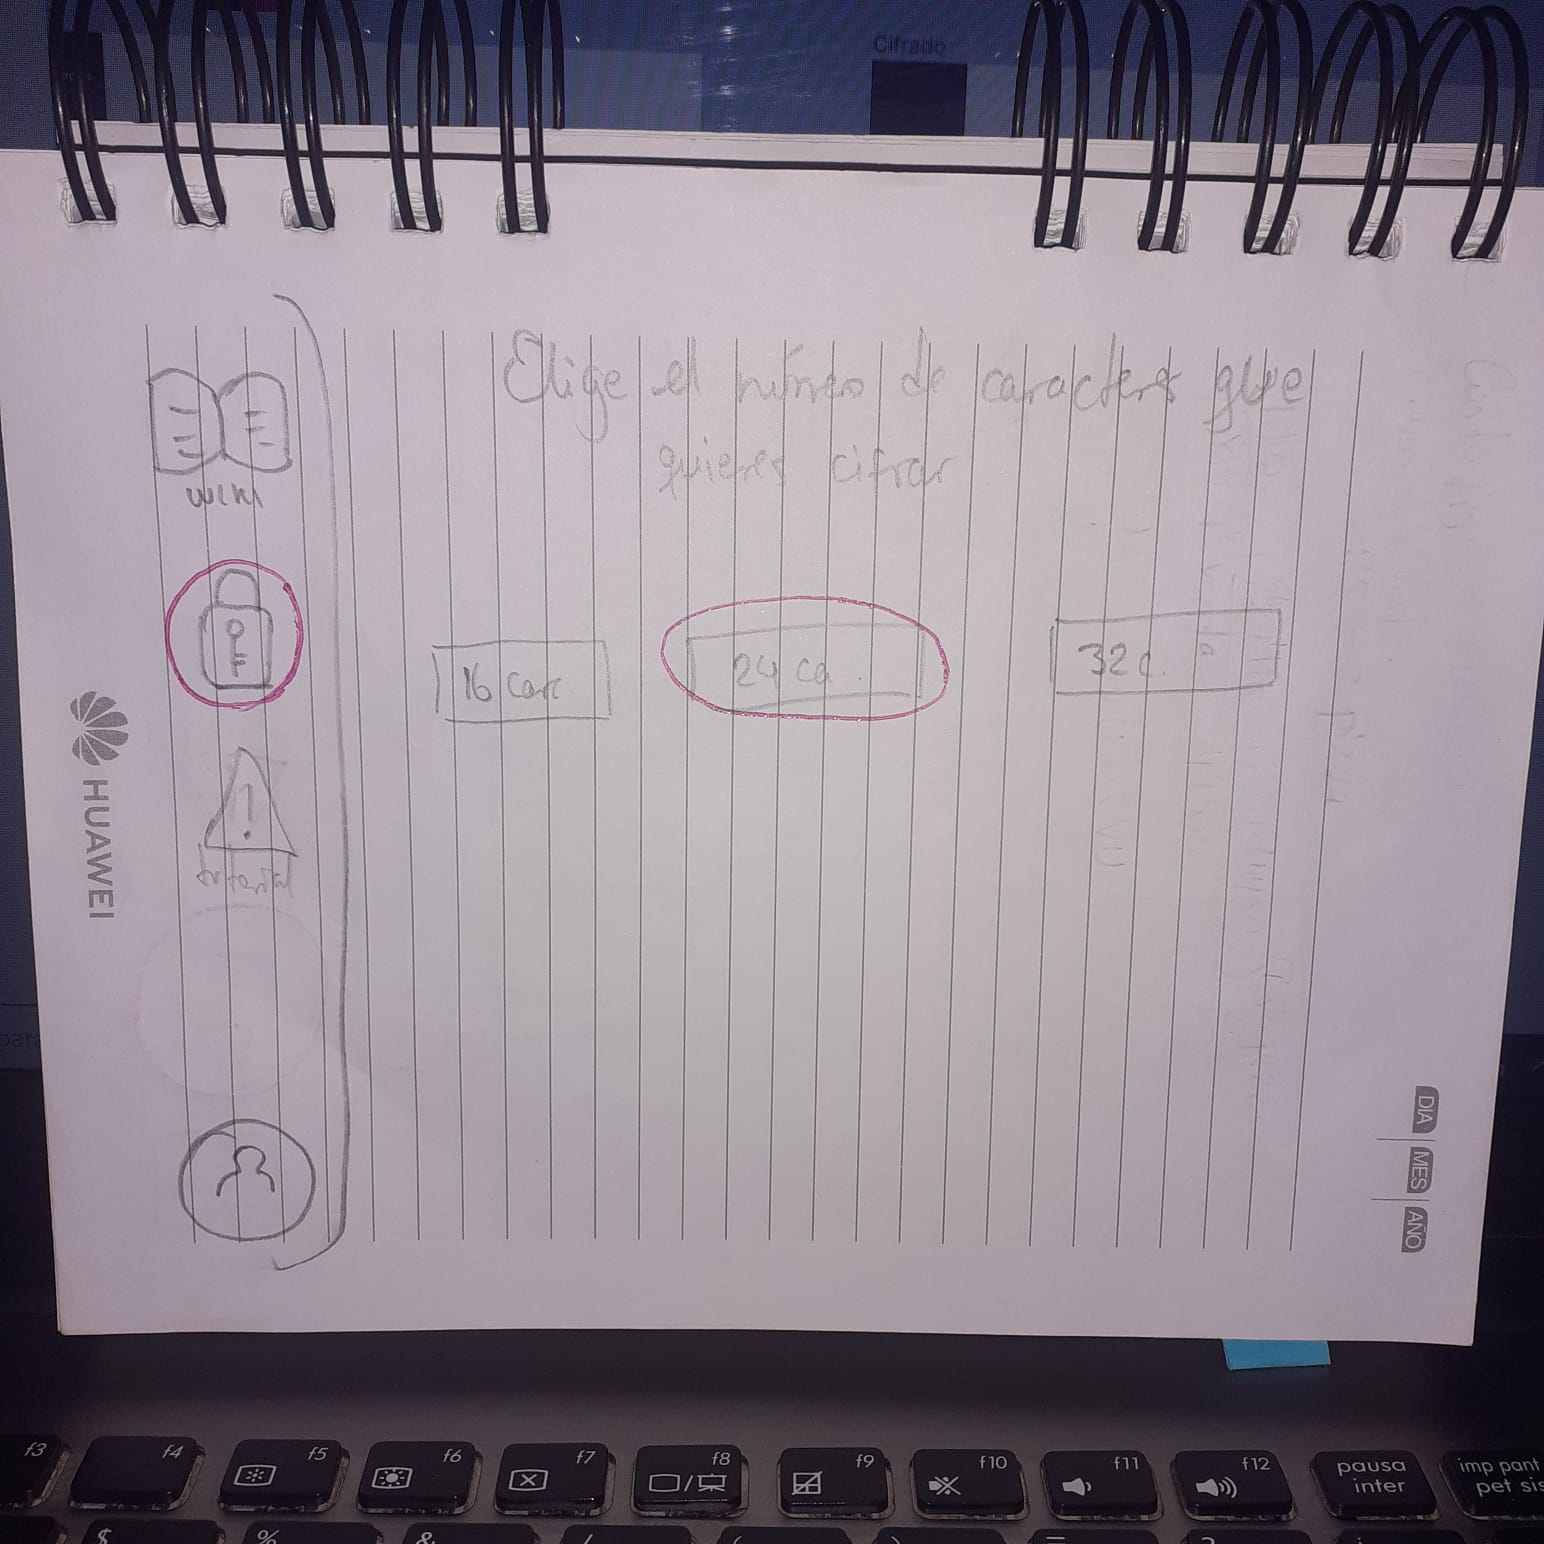 Cifrado
Elige el número de caracteres que
quieres cifrar
wiki
16 car.
24 ca.
32 c.
tutorial
HUAWEI
DIA
MES
ANO
f3
f4
f5
f6
f7
f8
f9
f10
f11
f12
pausa
inter
imp pant
pet sis
$
%
&
/
(
)
=
?